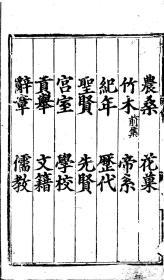 農桑 花菓
竹木前集 帝系
紀年 歷代
聖賢 先賢
宮室 學校
貢舉 文籍
辭章 儒教